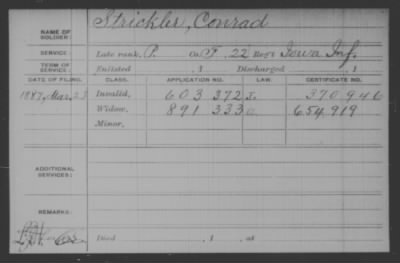 NAME OF SOLDIER: Strickler, Conrad
SERVICE: Late rank, P. Co. F, 22 Reg't Iowa Inf.
TERM OF SERVICE: Enlisted , 1 Discharged , 1
DATE OF FILING. CLASS. APPLICATION NO. LAW. CERTIFICATE NO.
1887, Mar. 23 Invalid, 603 372 370 946
Widow, 891 333 654,919
Minor,
ADDITIONAL SERVICES:
REMARKS:
Died , 1 , at